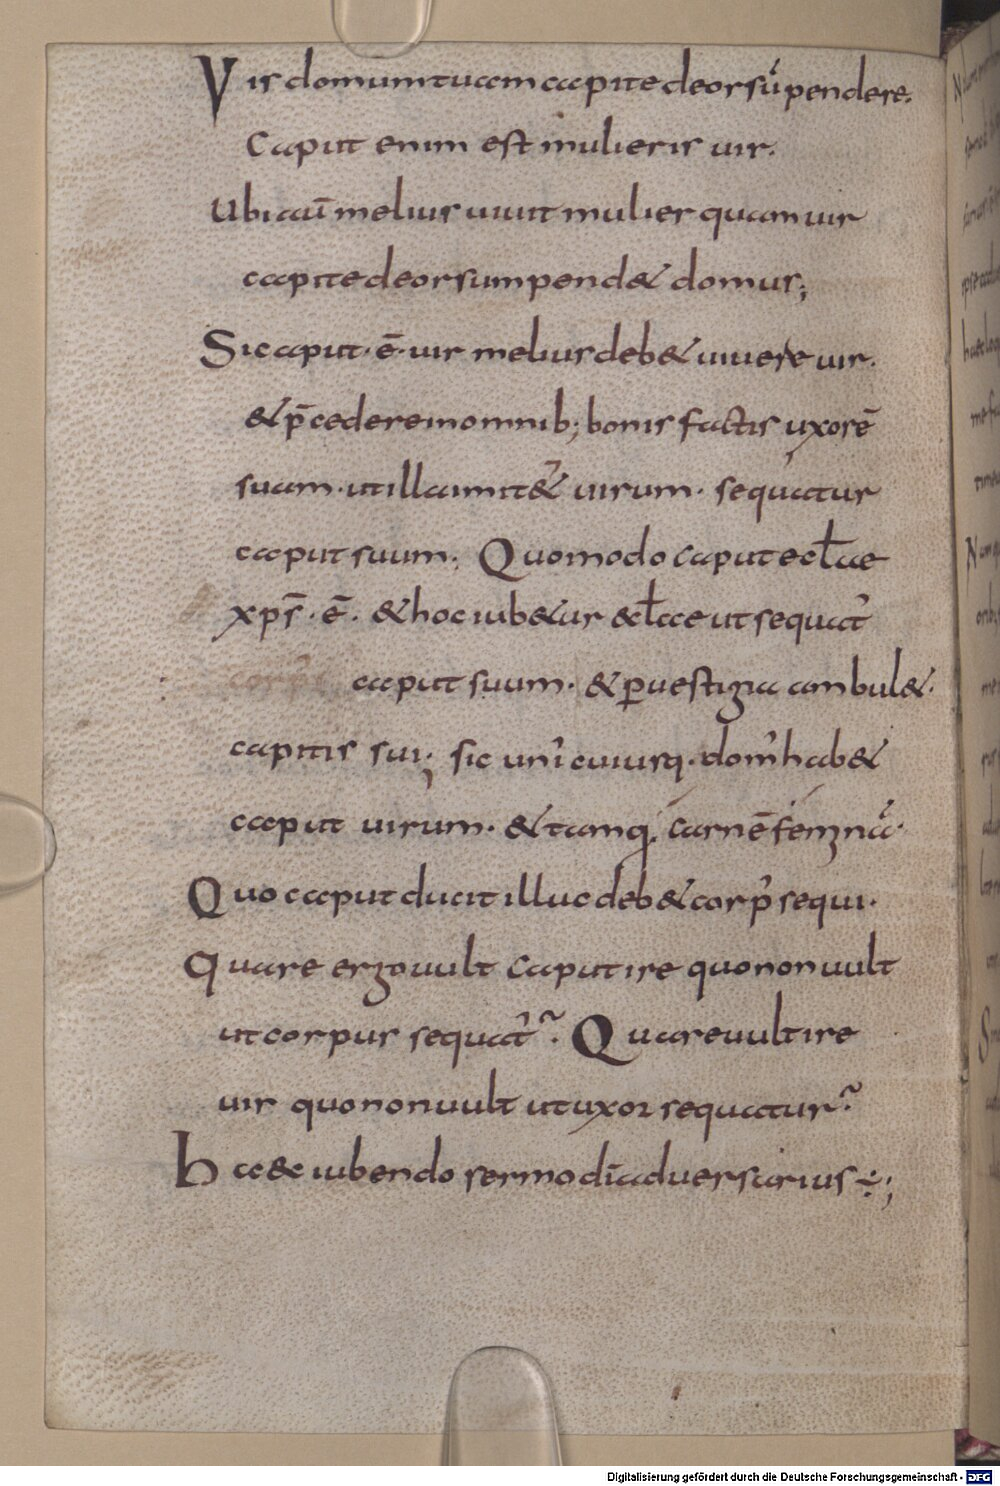 Vis domum tuam capite deorsū pendere.
Caput enim est mulieris uir.
Ubi aūt melius uiuit mulier quam uir
capite deorsum pend& domus;
Sic caput · ē · uir melius deb& uiuere uir.
& p̄cedere in omnib; bonis factis uxorē
suam · ut illa imit&' uirum · sequatur
caput suum. Quomodo caput eccl̄ae
xp̄s · ē · & hoc iub&ur &cl̄ae ut sequat'
caput suum · & ꝑ uestigia ambul& ·
capitis sui; sic uni'cuiusq. dom' hab&
caput uirum · & tamq. carnē feminā ·
Quo caput ducit illuc deb& corp' sequi ·
Quare ergo uult caput ire quo non uult
ut corpus sequat'? Quare uult ire
uir quo non uult ut uxor sequatur?
Haec iubendo sermo dī aduersarius ÷;
Digitalisierung gefördert durch die Deutsche Forschungsgemeinschaft - DFG